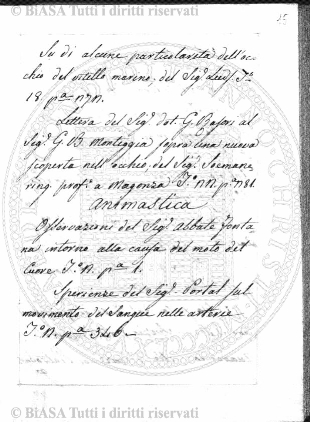 © BIASA Tutti i diritti riservati
Su di alcune particolarità dell'oc-
chio del vitello marino, del Sigr
18. pa
Lettera del Sigr dot. G. Rasori al
Sigr G. B. Monteggia sopra una nuova
scoperta nell'occhio, del Sigr Soemme-
ring profr a Magonza
Animastica
Osservazioni del Sigr Abbate Fonta
na intorno alla causa del moto del
Cuore To pa 1.
Sperienze del Sigr Portal sul
movimento del Sangue nelle arterie
To pa 346
© BIASA Tutti i diritti riservati